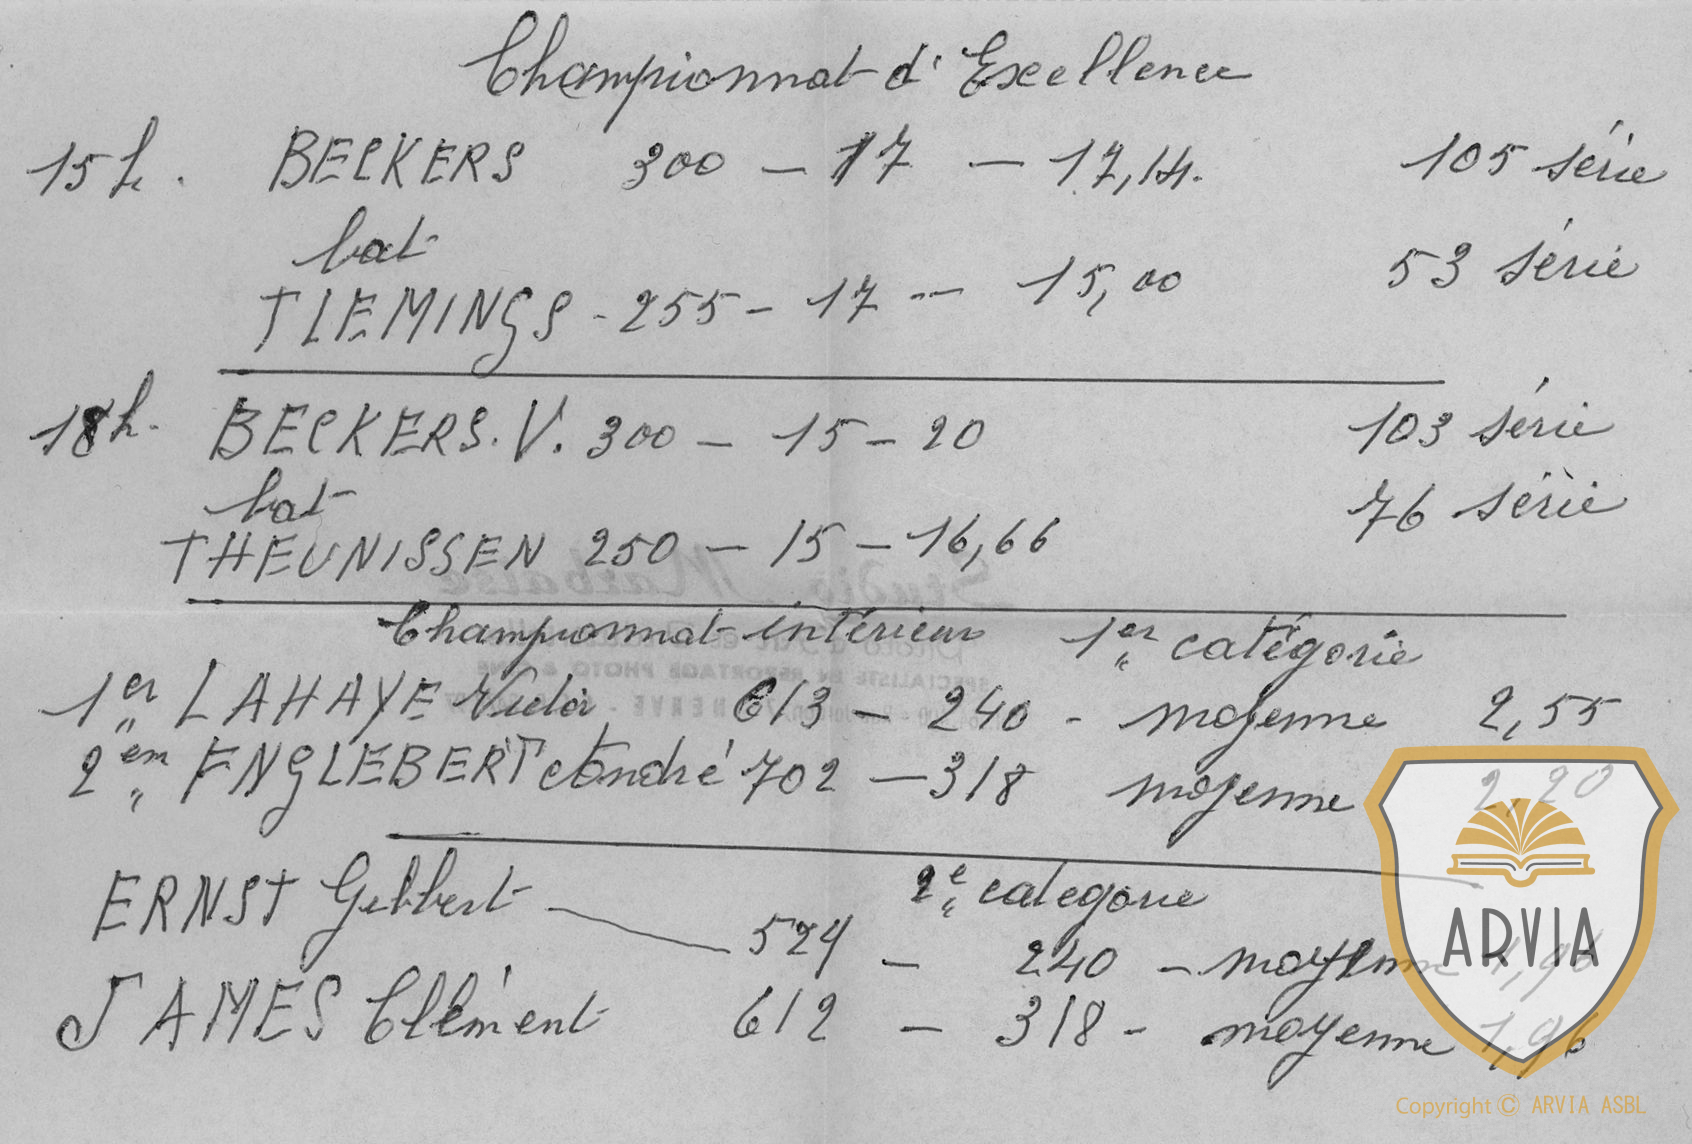 Championnat d'Excellence
15 h. BECKERS 300 - 17 - 17,14. 105 série
bat
TLEMINGS - 255 - 17 -- 15,00 53 série
18h. BECKERS. V. 300 - 15 - 20 103 série
bat 76 série
THEUNISSEN 250 - 15 - 16,66
Championnat intérieur 1er catégorie
1er LAHAYE Victor 613 - 240 - moyenne 2,55
2em ENGLEBERT André 702 - 318 moyenne 2,20
2e categorie
ERNST Gilbert 524 - 240 - moyenne
JAMES Clément 612 - 318 - moyenne 1,96
ARVIA
Copyright © ARVIA ASBL